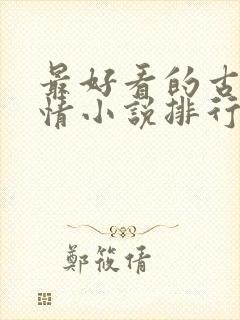 最好看的古
情小說排行
鄭筱倩